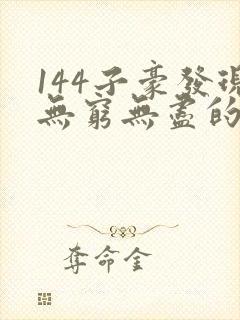 144子豪發現
無窮無盡的
奪命金